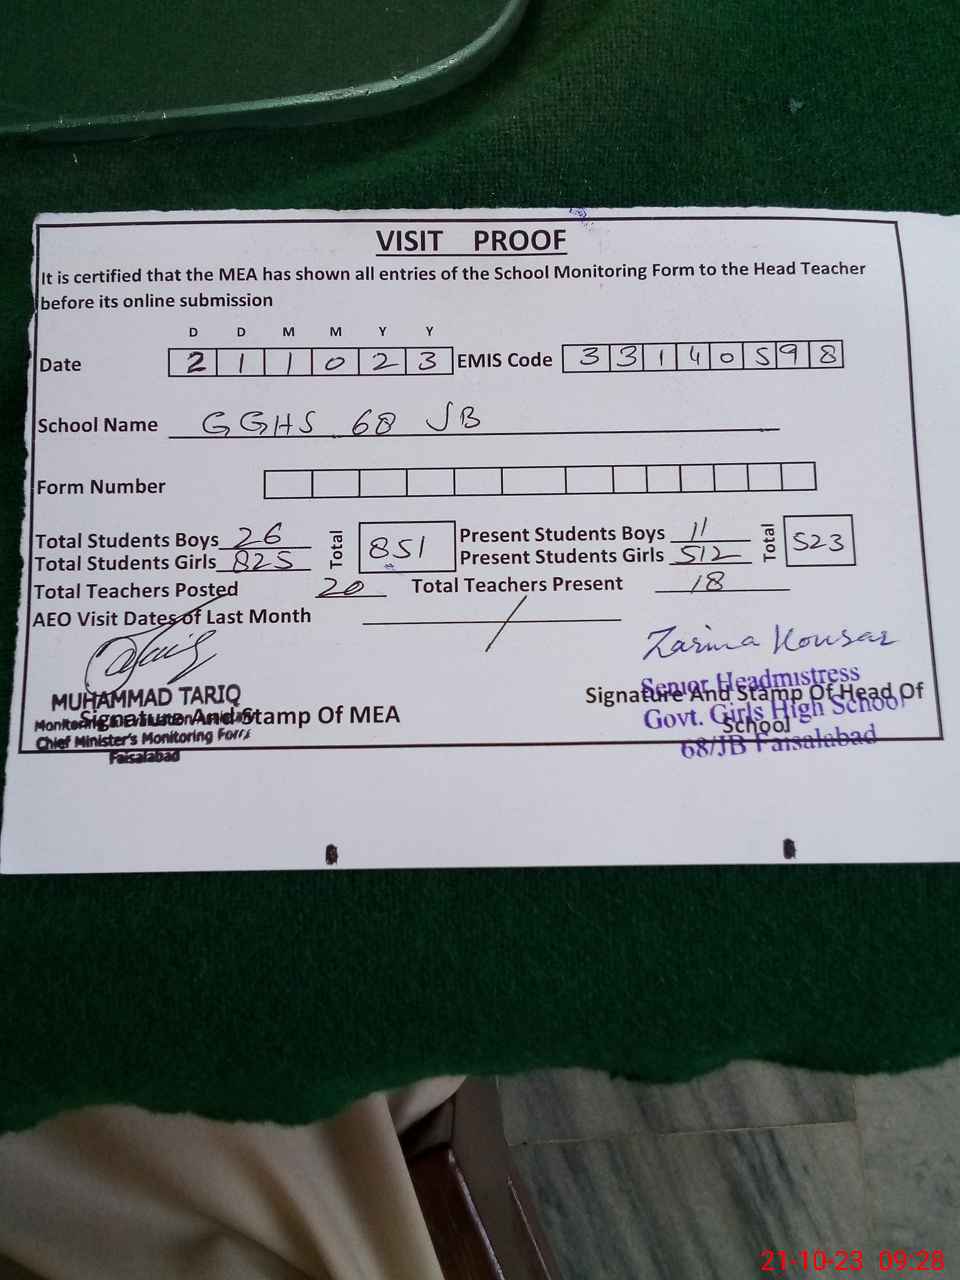 VISIT PROOF
It is certified that the MEA has shown all entries of the School Monitoring Form to the Head Teacher
before its online submission
D D M M Y Y
Date 2 1 1 0 2 3 EMIS Code 3 3 1 4 0 5 9 8
School Name GGHS 68 JB
Form Number
Total Students Boys 26 Total 851 Present Students Boys 11 Total 523
Total Students Girls 825 Present Students Girls 512
Total Teachers Posted 20 Total Teachers Present 18
AEO Visit Dates of Last Month /
Zarina Kousar
MUHAMMAD TARIQ
Signature And Stamp Of MEA
Monitoring
Chief Minister's Monitoring Force
Faisalabad
Signature And Stamp Of Head Of
School
Senior Headmistress
Govt. Girls High School
68/JB Faisalabad
21-10-23 09:28